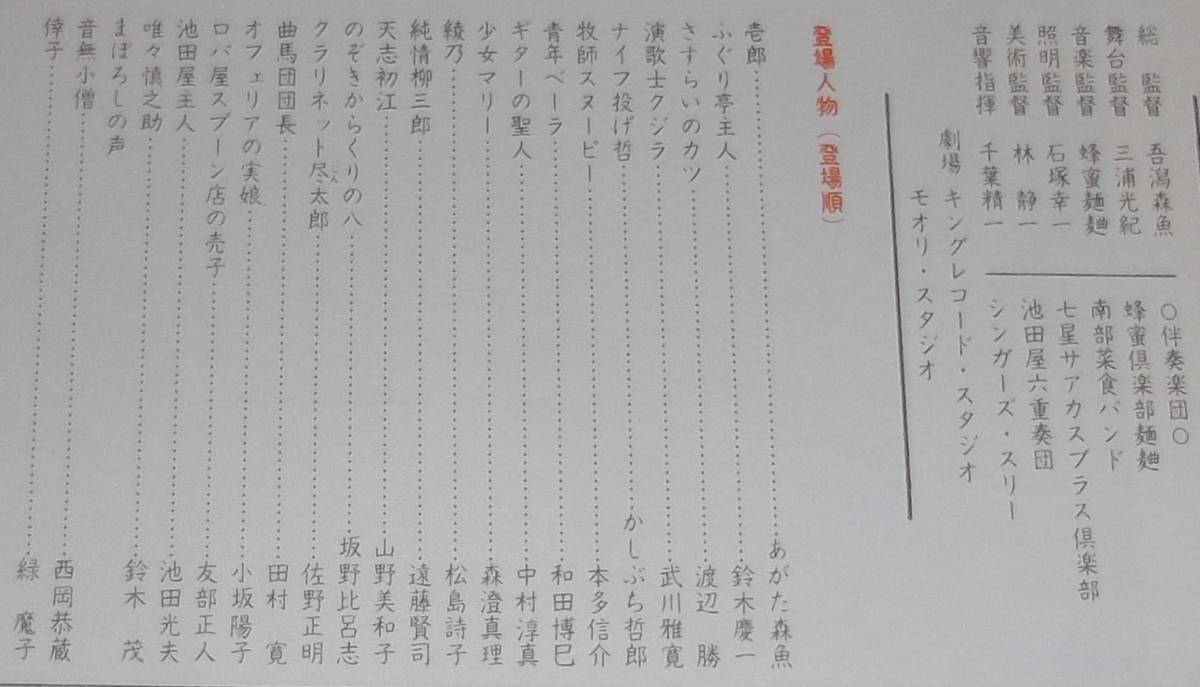 総　監督　吾潟森魚
舞台監督　三浦光紀
音楽監督　蜂蜜麺麭
照明監督　石塚幸一
美術監督　林　静一
音響指揮　千葉精一
○伴奏楽団○
蜂蜜倶楽部麺麭
南部菜食バンド
七星サアカスブラス倶楽部
池田屋六重奏団
シンガーズ・スリー
劇場　キングレコード・スタジオ
モオリ・スタジオ
登場人物（登場順）
壱郎……あがた森魚
ふぐり亭主人……鈴木慶一
さすらいのカツ……渡辺　勝
演歌士クジラ……武川雅寛
ナイフ投げ哲……かしぶち哲郎
牧師スヌーピー……本多信介
青年ベーラ……和田博巳
ギターの聖人……中村淳真
少女マリー……森澄真理
綾乃……松島詩子
純情柳三郎……遠藤賢司
天志初江……山野美和子
のぞきからくりの八……坂野比呂志
クラリネット尽太郎……佐野正明
じん
曲馬団団長……田村　寛
オフェリアの実娘……小坂陽子
ロバ屋スプーン店の売子……友部正人
池田屋主人……池田光夫
唯々慎之助……鈴木　茂
まぼろしの声
音無小僧……西岡恭蔵
倖子……緑　魔子